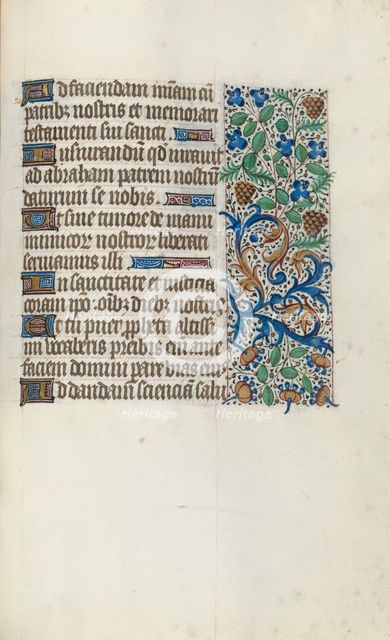 Ad faciendam miam cū
patribꝫ nostris et memorari
testamenti sui sancti
Iusiurandū qd iuravit
ad abraham patrem nostrū
daturum se nobis
Ut sine timore de manu
inimicoꝝ nostroꝝ liberati
serviamus illi
In sanctitate et iusticia
coram ipo oībꝫ diebꝫ nostris
Et tu puer ppheta altissi
mi vocaberis preibis eni ante
faciem domini parare vias eius
Ad dandam scienciam salu
Heritage
Heritage
Heritage
Heritage